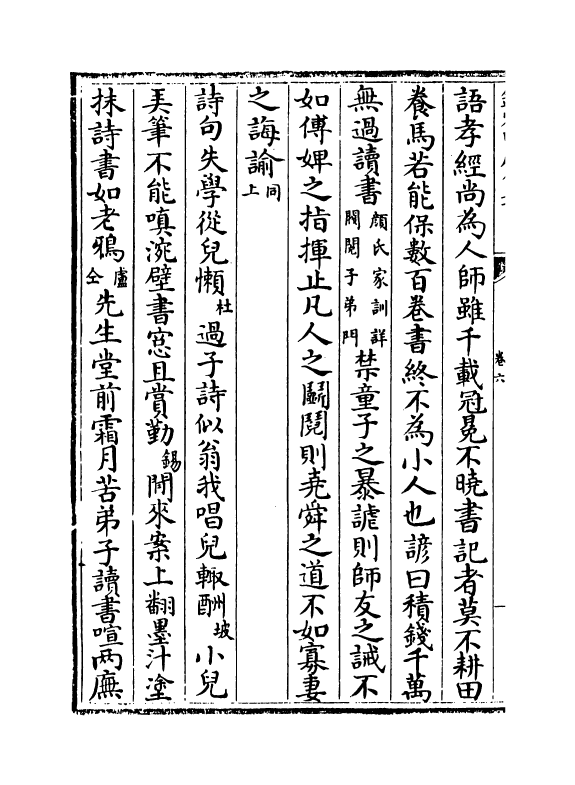 語孝經尚為人師雖千載冠冕不曉書記者莫不耕田
養馬若能保數百卷書終不為小人也諺曰積錢千萬
無過讀書顔氏家訓詳閥閲子弟門禁童子之暴謔則師友之誡不
如傅婢之指揮止凡人之鬭䦧則堯舜之道不如寡妻
之誨諭同上
詩句失學從兒懶杜過子詩似翁我唱兒輙酬坡小兒
弄筆不能嗔涴壁書窓且賞勤錫閒來案上翻墨汁塗
抹詩書如老鴉盧仝先生堂前霜月苦弟子讀書喧兩廡
卷六